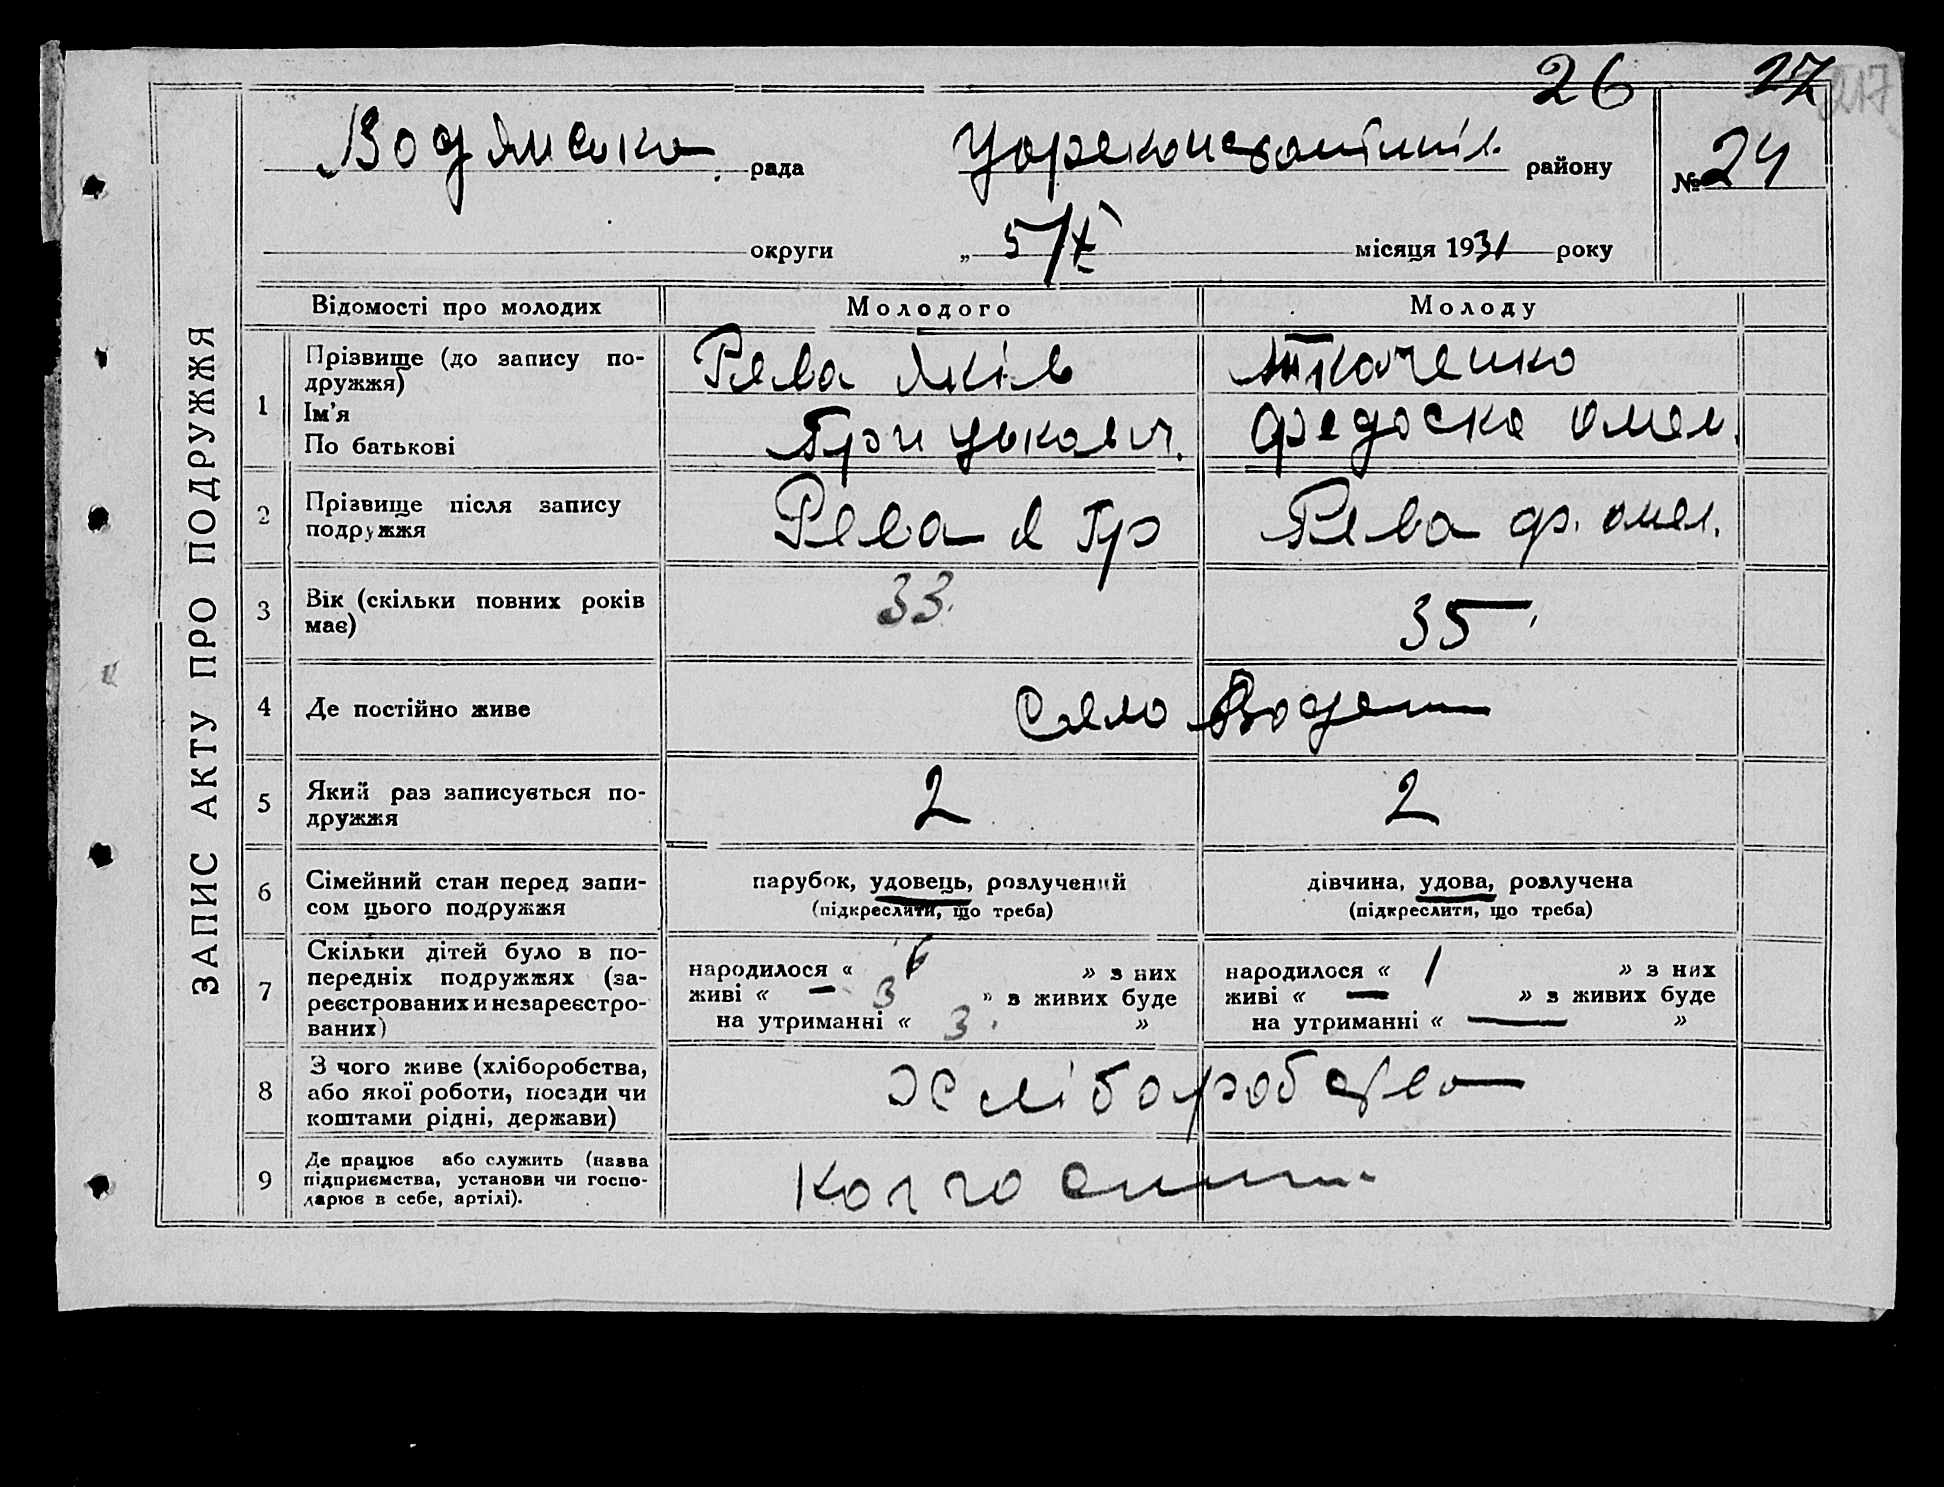 26 27 217
Водянська рада Цареконстантинів. району № 24
округи „ 5/X місяця 1931 року
ЗАПИС АКТУ ПРО ПОДРУЖЖЯ
Відомості про молодих Молодого Молоду
1 Прізвище (до запису по-
дружжя)
Ім'я
По батькові
Рева Яків Ткаченко
Грицькович. Федоска Омел.
2 Прізвище після запису
подружжя
Рева Я Гр Рева ф. омел.
3 Вік (скільки повних років
має)
33. 35
4 Де постійно живе Село Водяни
5 Який раз записується по-
дружжя
2 2
6 Сімейний стан перед запи-
сом цього подружжя
парубок, удовець, розлучений дівчина, удова, розлучена
(підкреслити, що треба) (підкреслити, що треба)
7 Скільки дітей було в по-
передніх подружжях (за-
реєстрованих и незареєстро-
ваних)
народилося « 6 » з них народилося « 1 » з них
живі « – 3 » з живих буде живі « — » з живих буде
на утриманні « 3. » на утриманні « — »
8 З чого живе (хліборобства,
або якої роботи, посади чи
коштами рідні, держави)
Хліборобство
9 Де працює або служить (назва
підприємства, установи чи госпо-
дарює в себе, артілі).
Колгоспник